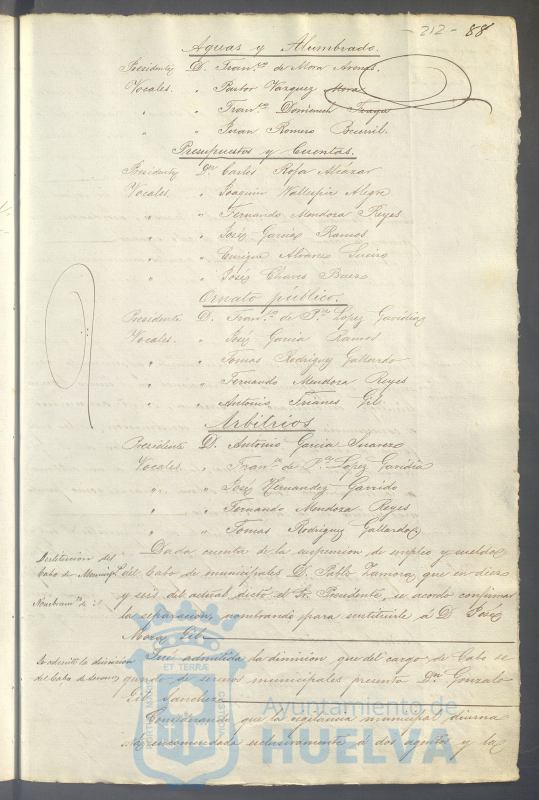 - 212 - 88
Aguas y Alumbrado.
Presidente D. Fran.co de Mora Arenas.
Vocales. " Pastor Vazquez Mora
" " Fran.co Domenech Fraga
" " Juan Romero Becerril.
Presupuestos y Cuentas.
Presidente Dn Carlos Rofa Alcazar
Vocales. " Joaquin Alegre
" " Fernando Mendoza Reyes
" " José Garcia Ramos
" " Enrique Alvarez Sueiro
" " José Chaves Baez
Ornato público.
Presidente D. Fran.co de P.la Lopez Gavidia
Vocales. " José Garcia Ramos
" " Tomas Rodriguez Gallardo
" " Fernando Mendoza Reyes
" " Antonio Trianes Gil.
Arbitrios
Presidente D. Antonio Garcia Suarez
Vocales. " Fran.co de P.la Lopez Gavidia
" " José Hernandez Garrido
" " Fernando Mendoza Reyes
" " Tomas Rodriguez Gallardo
Destitucion del
Cabo de
Nombram.to de
Dada cuenta de la suspension de empleo y sueldo
del Cabo de municipales D. Pablo Zamora, que en diez
y seis del actual dictó el Sr. Presidente, se acordó confirmar
la separacion, nombrando para sustituirle á D. José
Mora Gil.
Se admite la dimision
del Cabo de serenos
Fué admitida la dimision que del cargo de Cabo se
gundo de serenos municipales presenta Dn Gonzalo
Gil Sanchez
Considerando que la vigilancia municipal diurna
está encomendada esclusivamente á dos agentes y la
ET TERRA
Ayuntamiento de
HUELVA